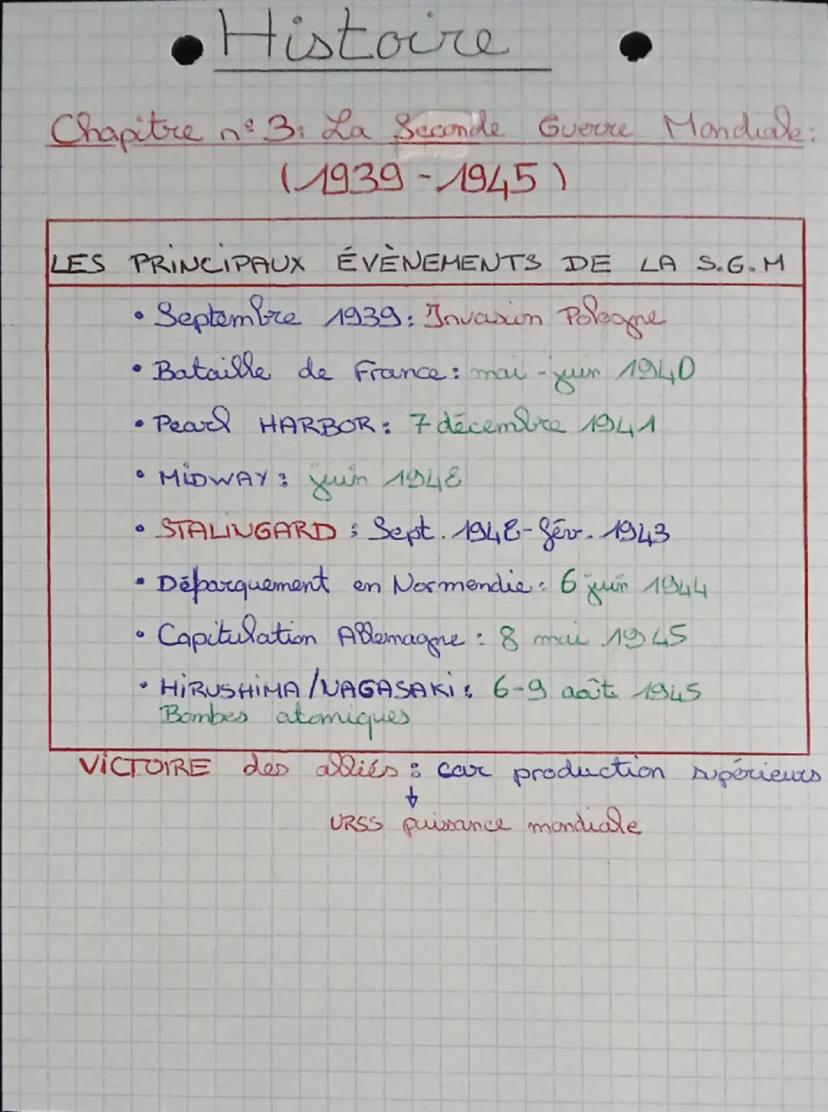 Histoire
Chapitre n° 3: La Seconde Guerre Mondiale:
(1939-1945)
LES PRINCIPAUX ÉVÈNEMENTS DE LA S.G.M
• Septembre 1939: Invasion Pologne
• Bataille de France: mai-juin 1940
• Pearl HARBOR: 7 décembre 1941
• MIDWAY: juin 1942
• STALINGARD: Sept. 1942-fév. 1943
• Déparquement en Normendie: 6 juin 1944
• Capitulation Allemagne: 8 mai 1945
• HIRUSHIMA/NAGASAKI: 6-9 août 1945
Bombes atomiques
VICTOIRE des alliés: car production supérieurs
↓
URSS puissance mondiale